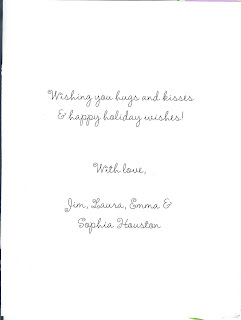 Wishing you hugs and kisses
& happy holiday wishes!
With love,
Jim, Laura, Emma &
Sophia Houston